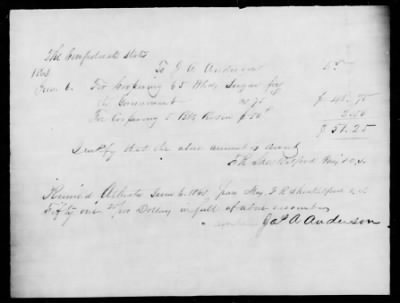 The Confederate States
1863 To J A Anderson Dr
June 6. For Coopering 65 Hhds Sugar for
the Government at 75 $ 48.75
For Coopering 5 Bbls Rosin @ 50c 2.50
$ 51.25
I certify that the above account is correct
Maj & Q.M.
Received June 6 1863 from Maj
Fifty one 25/100 Dollars in full of above account
Jas A Anderson